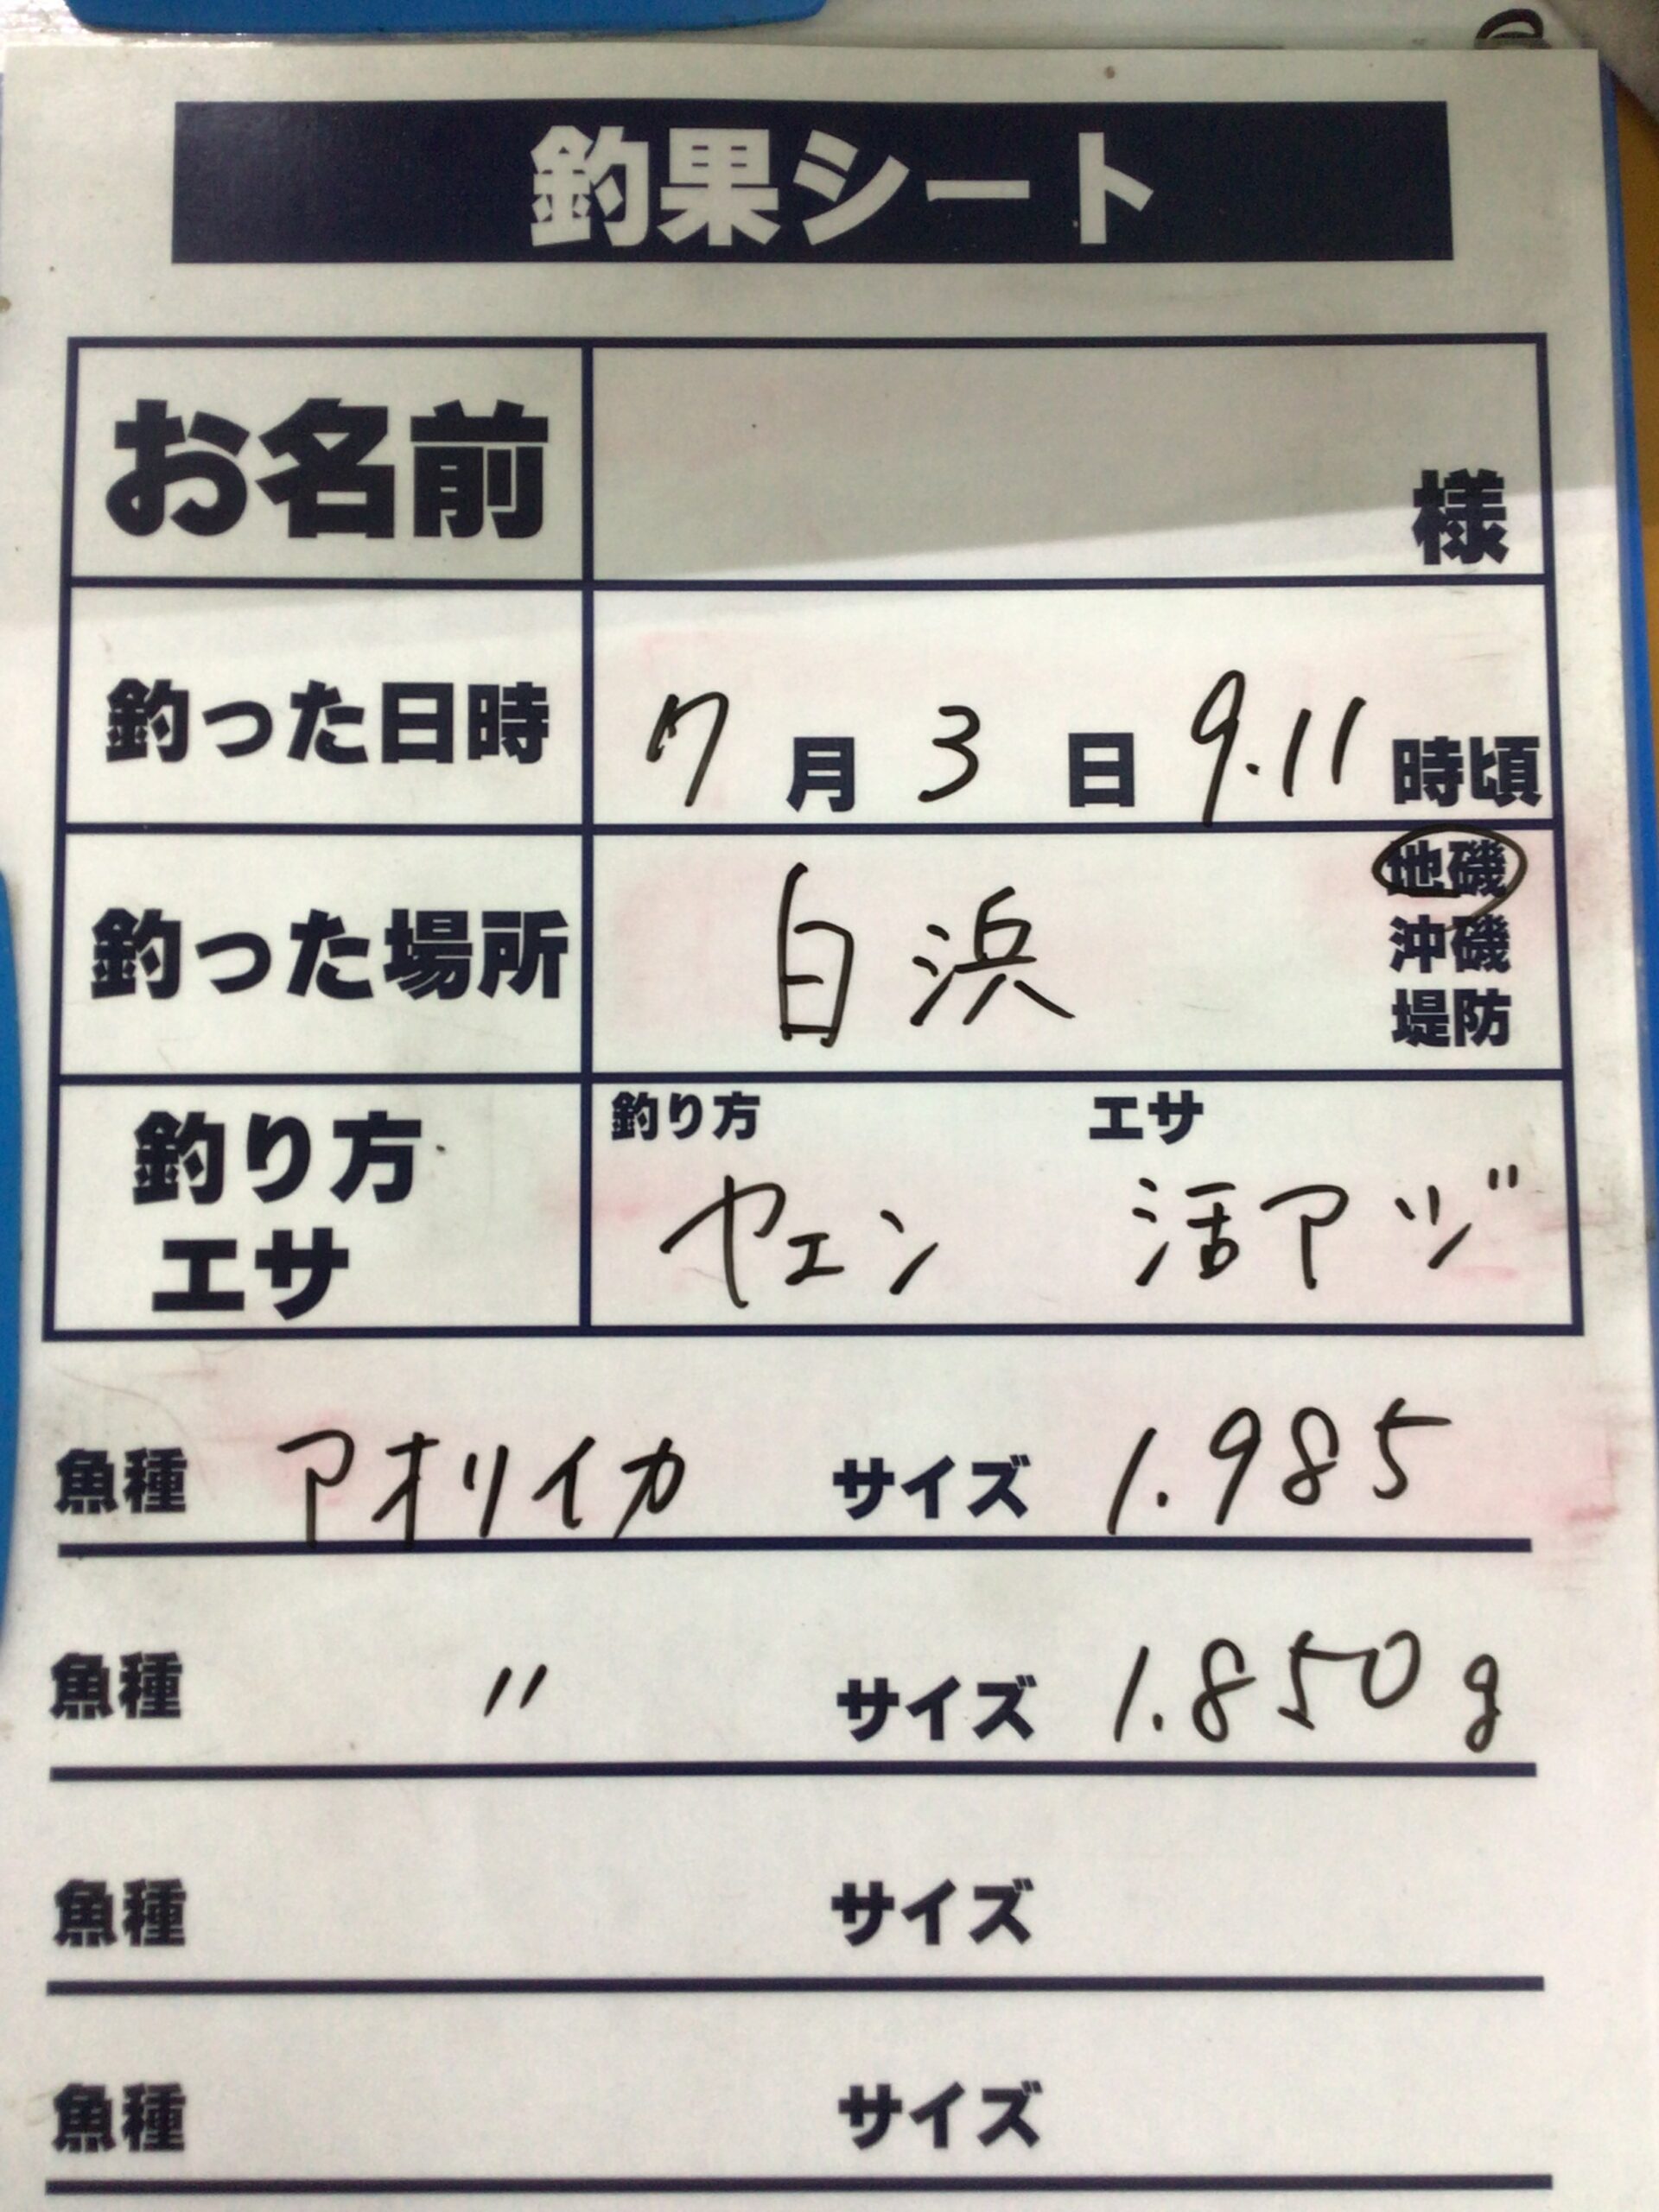 釣果シート
お名前 様
釣った日時 7月3日9.11時頃
釣った場所 白浜 地磯
沖磯
堤防
釣り方 エサ
釣り方 ヤエン 活アジ
エサ
魚種 アオリイカ サイズ 1.985
魚種 〃 サイズ 1.850g
魚種 サイズ
魚種 サイズ